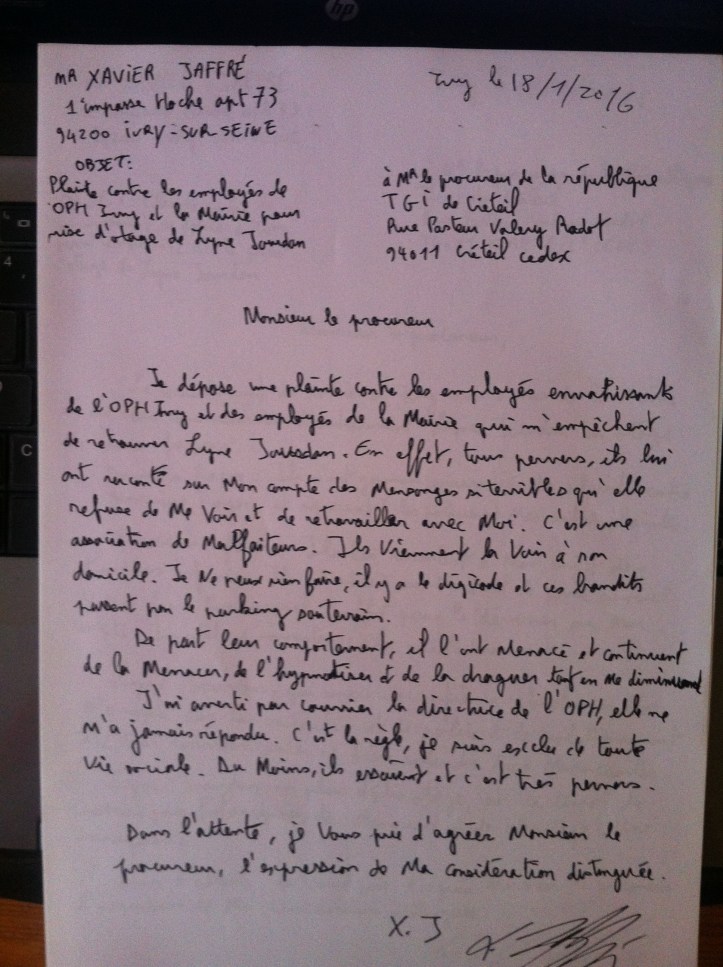 hp
MR XAVIER JAFFRÉ
Ivry le 18/1/2016
1 impasse Hoche apt 73
94200 IVRY-SUR SEINE
OBJET:
Plainte contre les employés de
OPH Ivry et la Mairie pour
prise d'otage de Lyne Jourdan
à Mr le procureur de la république
TGI de Créteil
Rue Pasteur Valery Radot
94011 Créteil cedex
Monsieur le procureur
Je dépose une plainte contre les employés envahissants
de l'OPH Ivry et des employés de la Mairie qui m'empêchent
de retrouver Lyne Jourdan. En effet, tous pervers, ils lui
ont raconté sur Mon compte des Mensonges si terribles qu'elle
refuse de Me Voir et de retravailler avec Moi. C'est une
association de Malfaiteurs. Ils Viennent la Voir à son
domicile. Je Ne peux rien faire, il y a le digicode et ces bandits
passent par le parking souterrain.
De part leur comportement, il l'ont Menacé et continuent
de la Menacer, de l'hypnotiser et de la draguer tout en me diminuant
J'ai averti par courrier la directrice de l'OPH, elle ne
M'a jamais répondu. C'est la règle, je suis exclu de toute
Vie sociale. Du Moins, ils essaient et c'est très pervers.
Dans l'attente, je Vous prie d'agréer Monsieur le
procureur, l'expression de Ma considération distinguée.
X. J